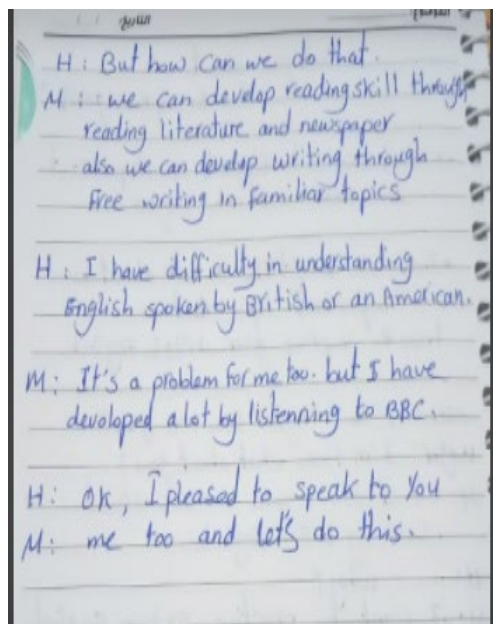 التاريخ
H: But how can we do that.
M: we can develop reading skill through
reading literature and newspaper
also we can develop writing through
Free writing in familiar topics
H: I have difficulty in understanding
English spoken by British or an American.
M: It's a problem for me too. but I have
devoloped a lot by listenning to BBC.
H: OK, I pleased to speak to you
M: me too and let's do this.